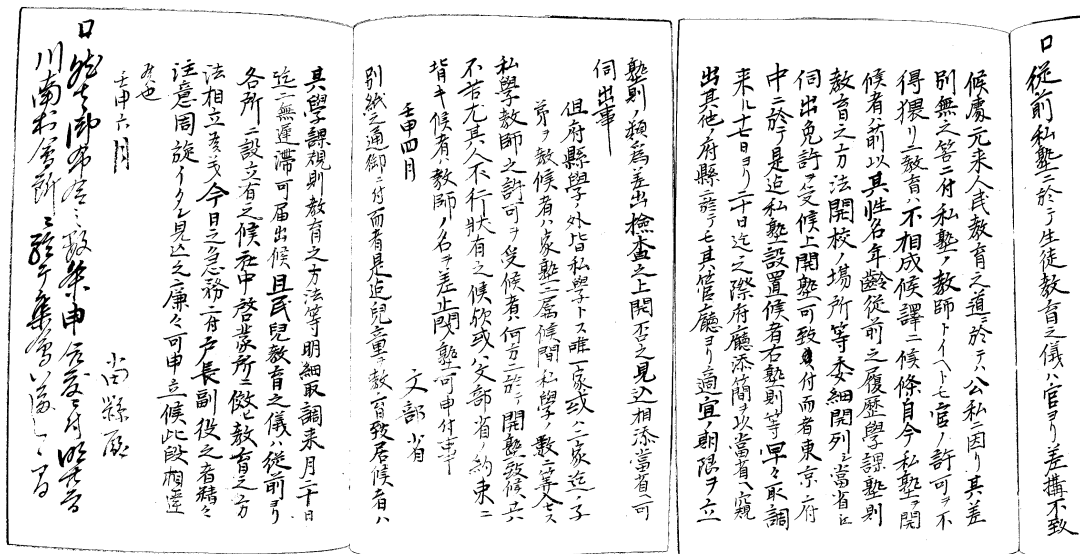 口従前私塾ニ於テ生徒教育之儀ハ官ヨリ差構不致
候處元来人民教育之道ニ於テハ公私ニ因リ其差
別無之筈ニ付私塾ノ教師トイヘトモ官ノ許可ヲ不
得猥リニ教育ハ不相成候譯ニ候條自今私塾ヲ開
候者ハ前以其性名年齡従前之履歴學課塾則
教育之方法開校ノ場所等委細開列シ當省江
伺出免許ヲ受候上開塾可致付而者東京府
中ニ於テ是迠私塾設置候者右塾則等早々取調
来ル十七日ヨリ二十日迠之際府廳添簡ヲ以當省ヘ窺
出其他ノ府縣ニ於テモ其管廳ヨリ適宜ノ期限ヲ立
塾則ノ類為差出檢査之上開否之見込相添當省ヘ可
伺出事
但府縣學ノ外皆私學トス唯一家或ハ二家迠ノ子
弟ヲ教候者ハ家塾ニ属候間私學ノ數ニ算入セス
私學教師之許可ヲ受候者ハ何方ニ於テ開塾致候共
不苦尤其人不行状有之候欤或ハ文部省ノ約束ニ
背キ候者ハ教師ノ名ヲ差止閉塾可申付事
壬申四月
文部省
別紙之通御ニ付而者是迠兒童ニ教育致居候者ハ
其學課規則教育之方法等明細取調来月二十日
迠ニ無遅滞可届出候且民兒教育之儀ハ従前ヨリ
各所ニ設立有之候社中啓蒙所ニ傚ヒ教育之方
法相立
今日之急務ニ付戸長副役之者精々
注意周旋イタシ見込之廉々可申立候此段相達
候也
壬申六月
小田縣廳
川南村會所